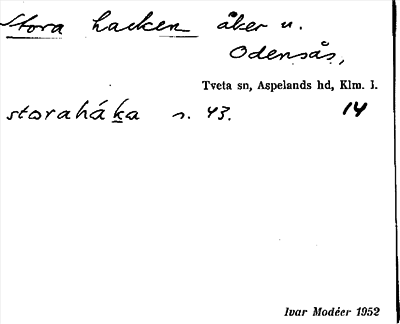 Stora hacken åker u.
Odensås,
Tveta sn, Aspelands hd, Klm. l.
storahák̲a s. 43. 14
Ivar Modéer 1952